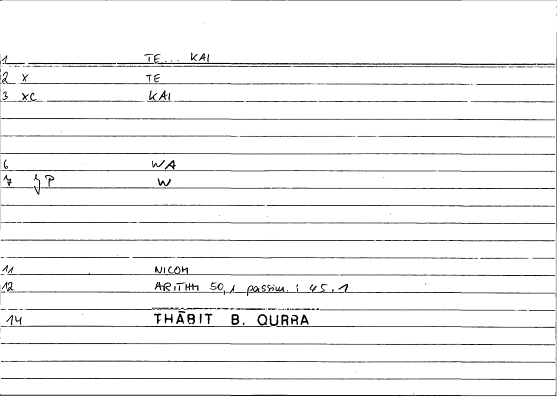 1 TE... KAI
2 X TE
3 XC KAI
6 WA
7 P W
11 NICOM
12 ARITHM 50,1 passim : 45.1
14 THĀBIT B. QURRA